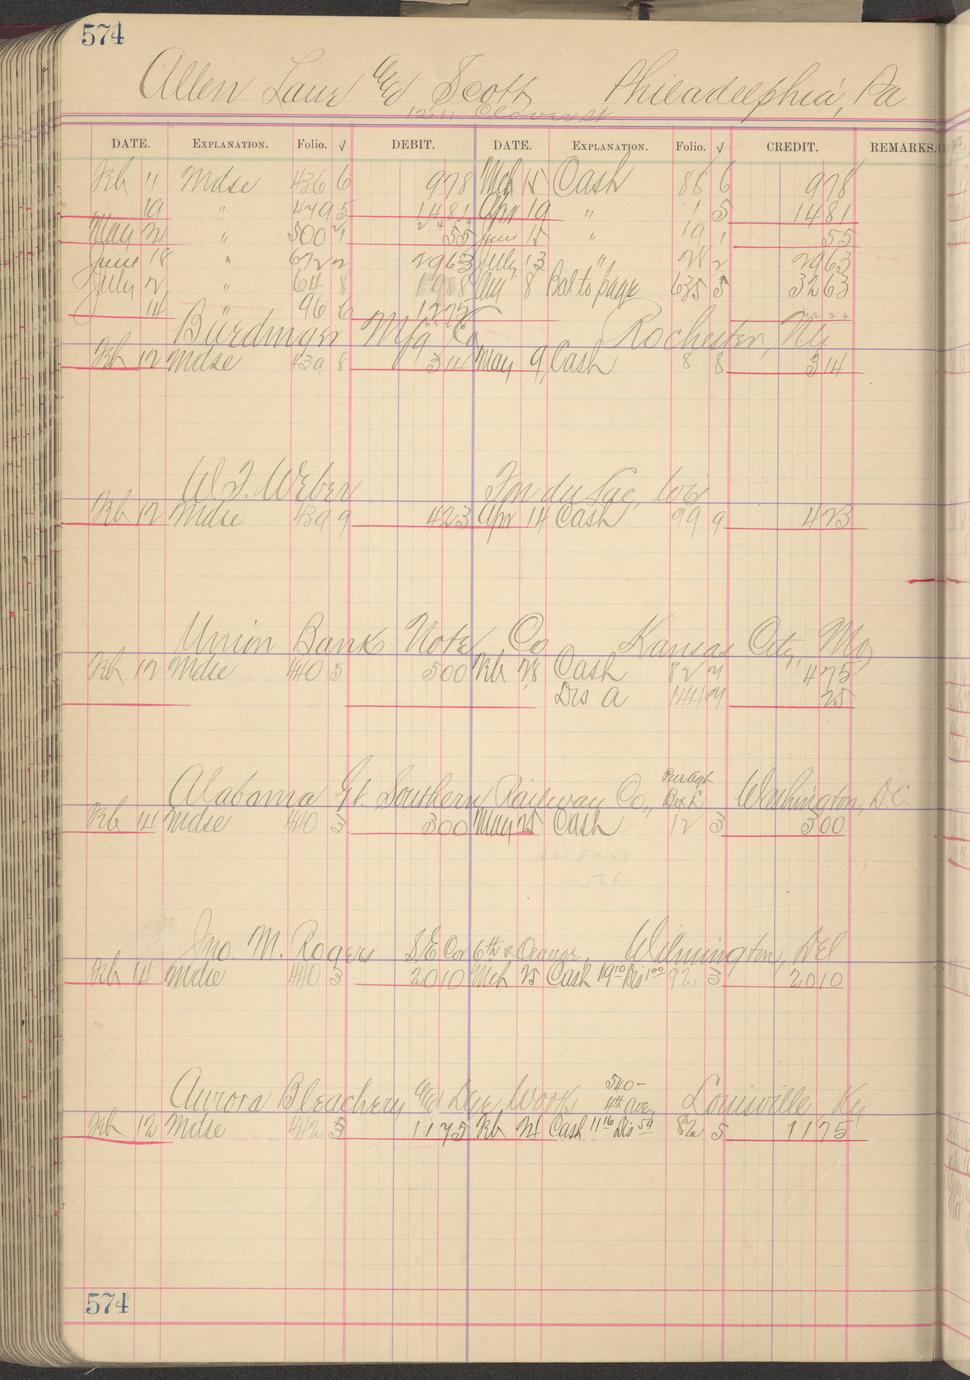 574
Allen Lane and Scott Philadelphia, Pa
1211 Clover st
DATE. EXPLANATION. Folio. √ DEBIT. DATE. EXPLANATION. Folio. √ CREDIT. REMARKS.
Feb 11 Mdse 436 6 978 Mch 15 Cash 86 6 978
19 " 479 5 1481 Apr 19 " 1 5 1481
May 2 " 500 1 55 June 15 " 19 1 55
June 18 " 672 2 2963 July 13 " 28 2 2963
July 2 " 64 8 1988 Aug 8 Bal to page 635 5 3263
14 " 96 6 1275
Burdman Mfg Co Rochester, Ny
Feb 12 Mdse 439 8 314 May 9 Cash 8 8 314
W. F. Weber Fon du Lac, Wis
Feb 12 Mdse 439 9 423 Apr 14 Cash 99 9 423
Union Bank Note Co Kansas City, Mo
Feb 12 Mdse 440 5 500 Feb 28 Cash 82 7 475
Dis A 144 7 25
Alabama Gt. Southern Railway Co., Box Washington, D.C.
Feb 14 Mdse 440 3 300 May 25 Cash 12 3 300
Jno. M. Rogers S.E. Cor 6th & Orange, Wilmington, Del
Feb 14 Mdse 440 3 2010 Mch 25 Cash 19 10 Dis 1 00 92 3 2010
Aurora Bleachery and Dye Works 540- 4th ave, Louisville, Ky
Feb 12 Mdse 442 5 1175 Feb 24 Cash 11 16 Dis 59 82 5 1175
574